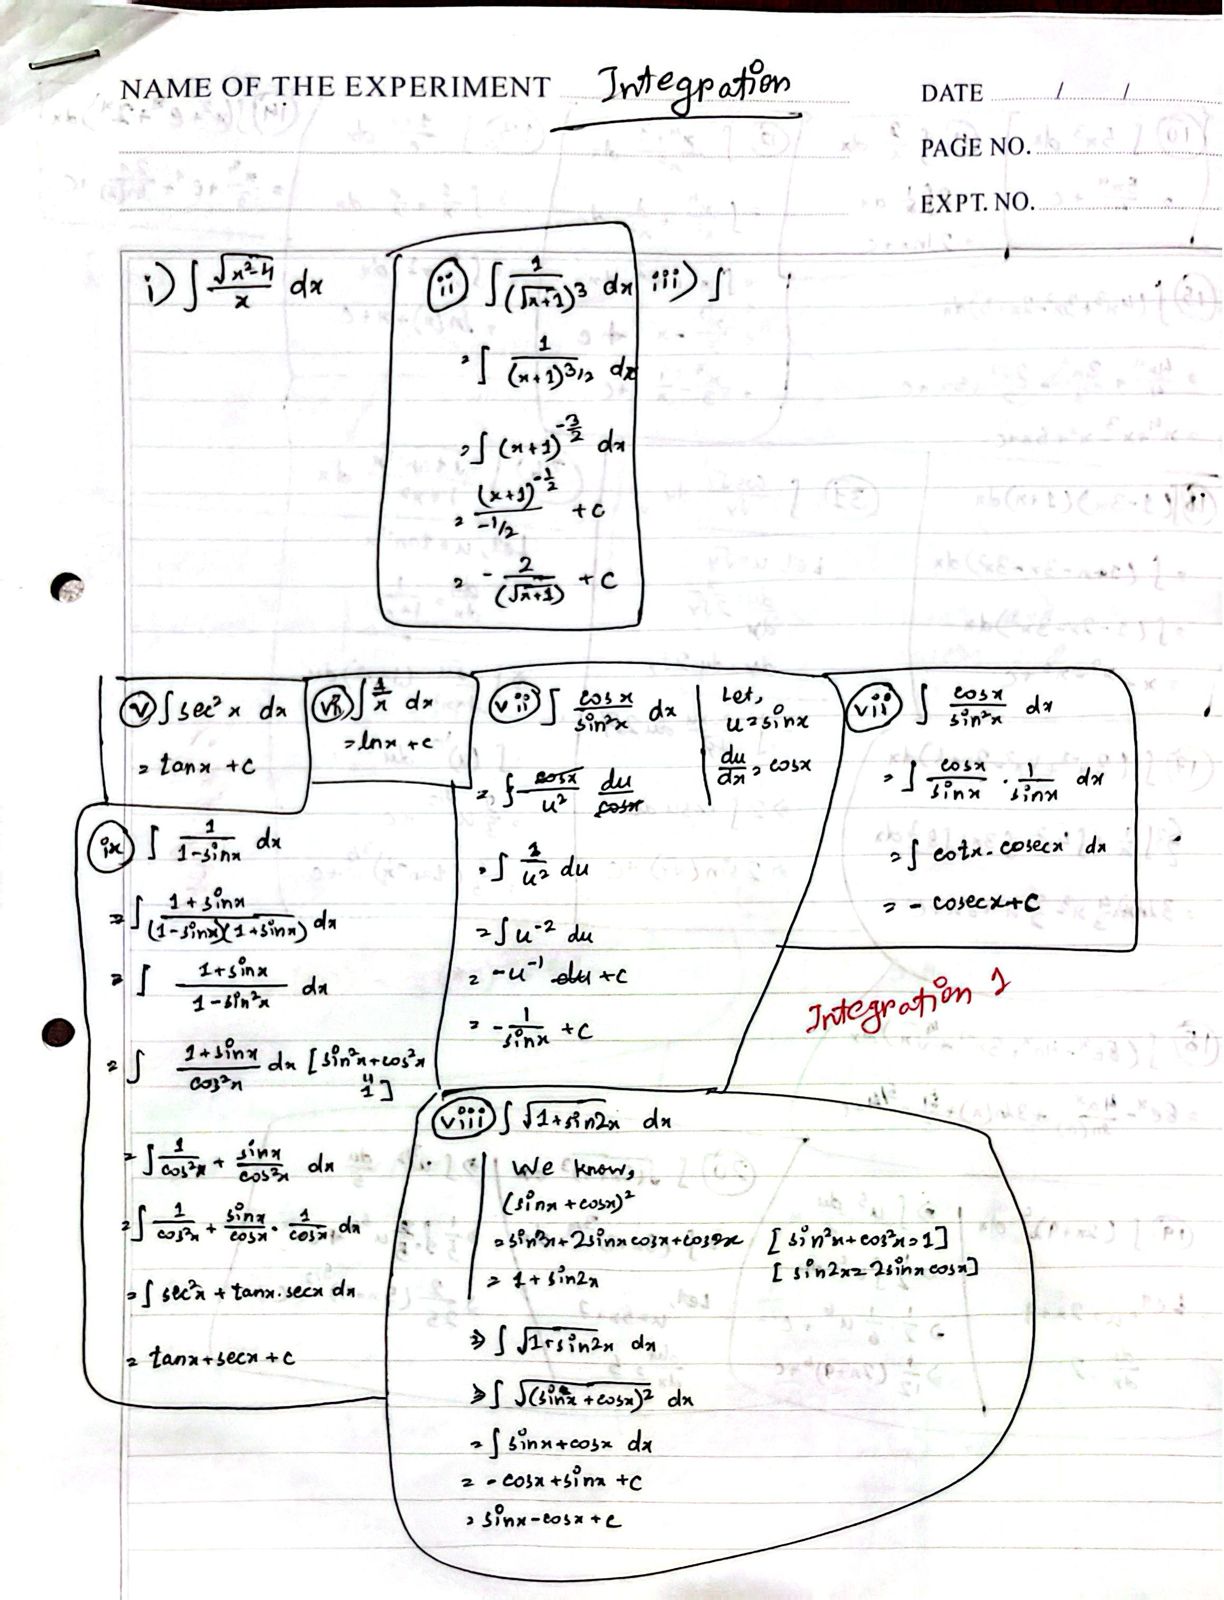 NAME OF THE EXPERIMENT Integration
DATE / /
PAGE NO.
EXPT. NO.
i) ∫ √(x²-4)/x dx
ii) ∫ 1/(√(x+1))³ dx
= ∫ 1/(x+1)^3/2 dx
= ∫ (x+1)^(-3/2) dx
= (x+1)^(-1/2)/(-1/2) + c
= - 2/(√(x+1)) + c
iii) ∫
v) ∫ sec²x dx
= tanx + c
vi) ∫ 1/x dx
= lnx + c
vii) ∫ cosx/sin²x dx
Let,
u = sinx
du/dx = cosx
= ∫ cosx/u² du/cosx
= ∫ 1/u² du
= ∫ u⁻² du
= -u⁻¹ du + c
= - 1/sinx + c
vii) ∫ cosx/sin²x dx
= ∫ cosx/sinx · 1/sinx dx
= ∫ cotx · cosecx dx
= - cosecx + c
Integration 1
ix) ∫ 1/(1-sinx) dx
= ∫ (1+sinx)/((1-sinx)(1+sinx)) dx
= ∫ (1+sinx)/(1-sin²x) dx
= ∫ (1+sinx)/cos²x dx [sin²x+cos²x = 1]
= ∫ 1/cos²x + sinx/cos²x dx
= ∫ 1/cos²x + sinx/cosx · 1/cosx dx
= ∫ sec²x + tanx.secx dx
= tanx + secx + c
viii) ∫ √(1+sin2x) dx
We know,
(sinx + cosx)²
= sin²x + 2sinx cosx + cos²x [sin²x+cos²x=1]
= 1 + sin2x [sin2x = 2sinx cosx]
⇒ ∫ √(1+sin2x) dx
⇒ ∫ √((sinx + cosx)²) dx
= ∫ sinx + cosx dx
= - cosx + sinx + c
= sinx - cosx + c